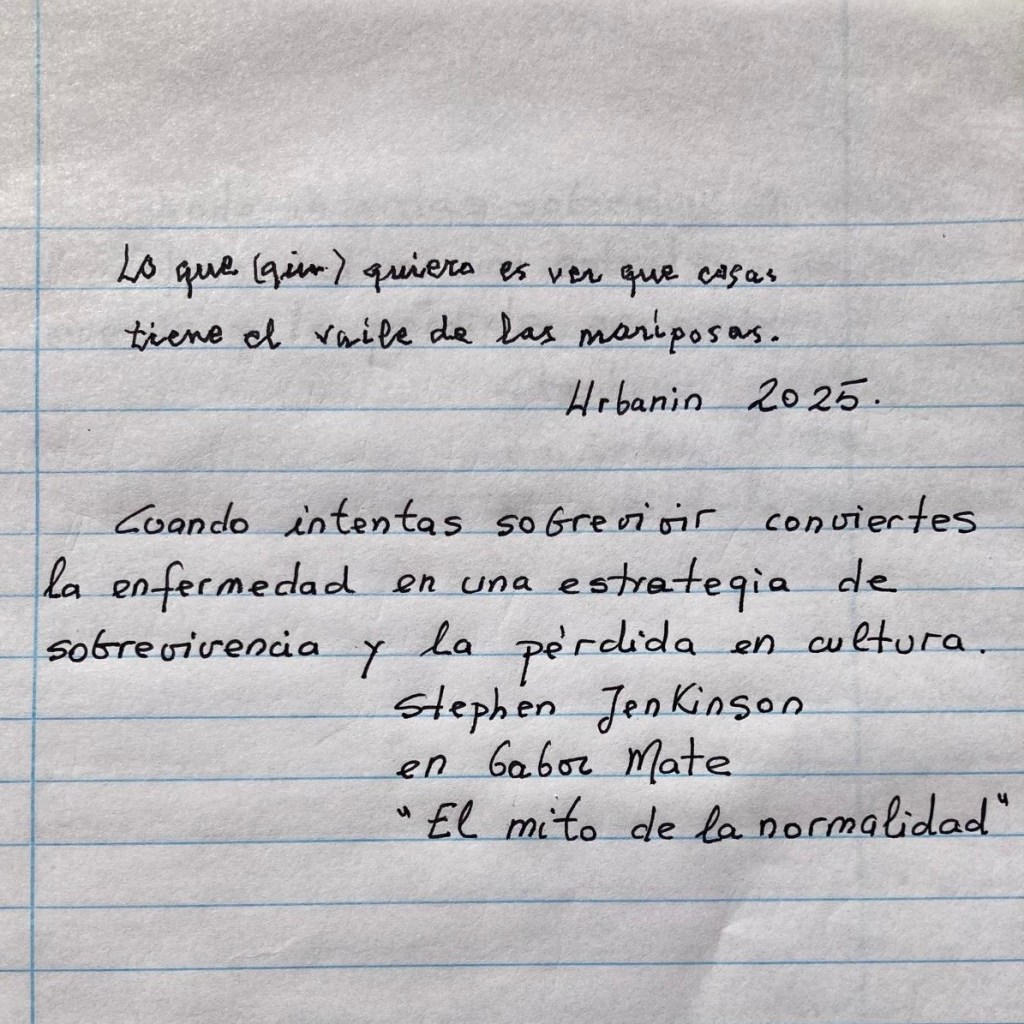 Lo que (qim) quiero es ver que cosas
tiene el vaile de las mariposas.
Urbanin 2025.
Cuando intentas sobrevivir conviertes
la enfermedad en una estrategia de
sobrevivencia y la pérdida en cultura.
Stephen Jenkinson
en Gabor Mate
"El mito de la normalidad"